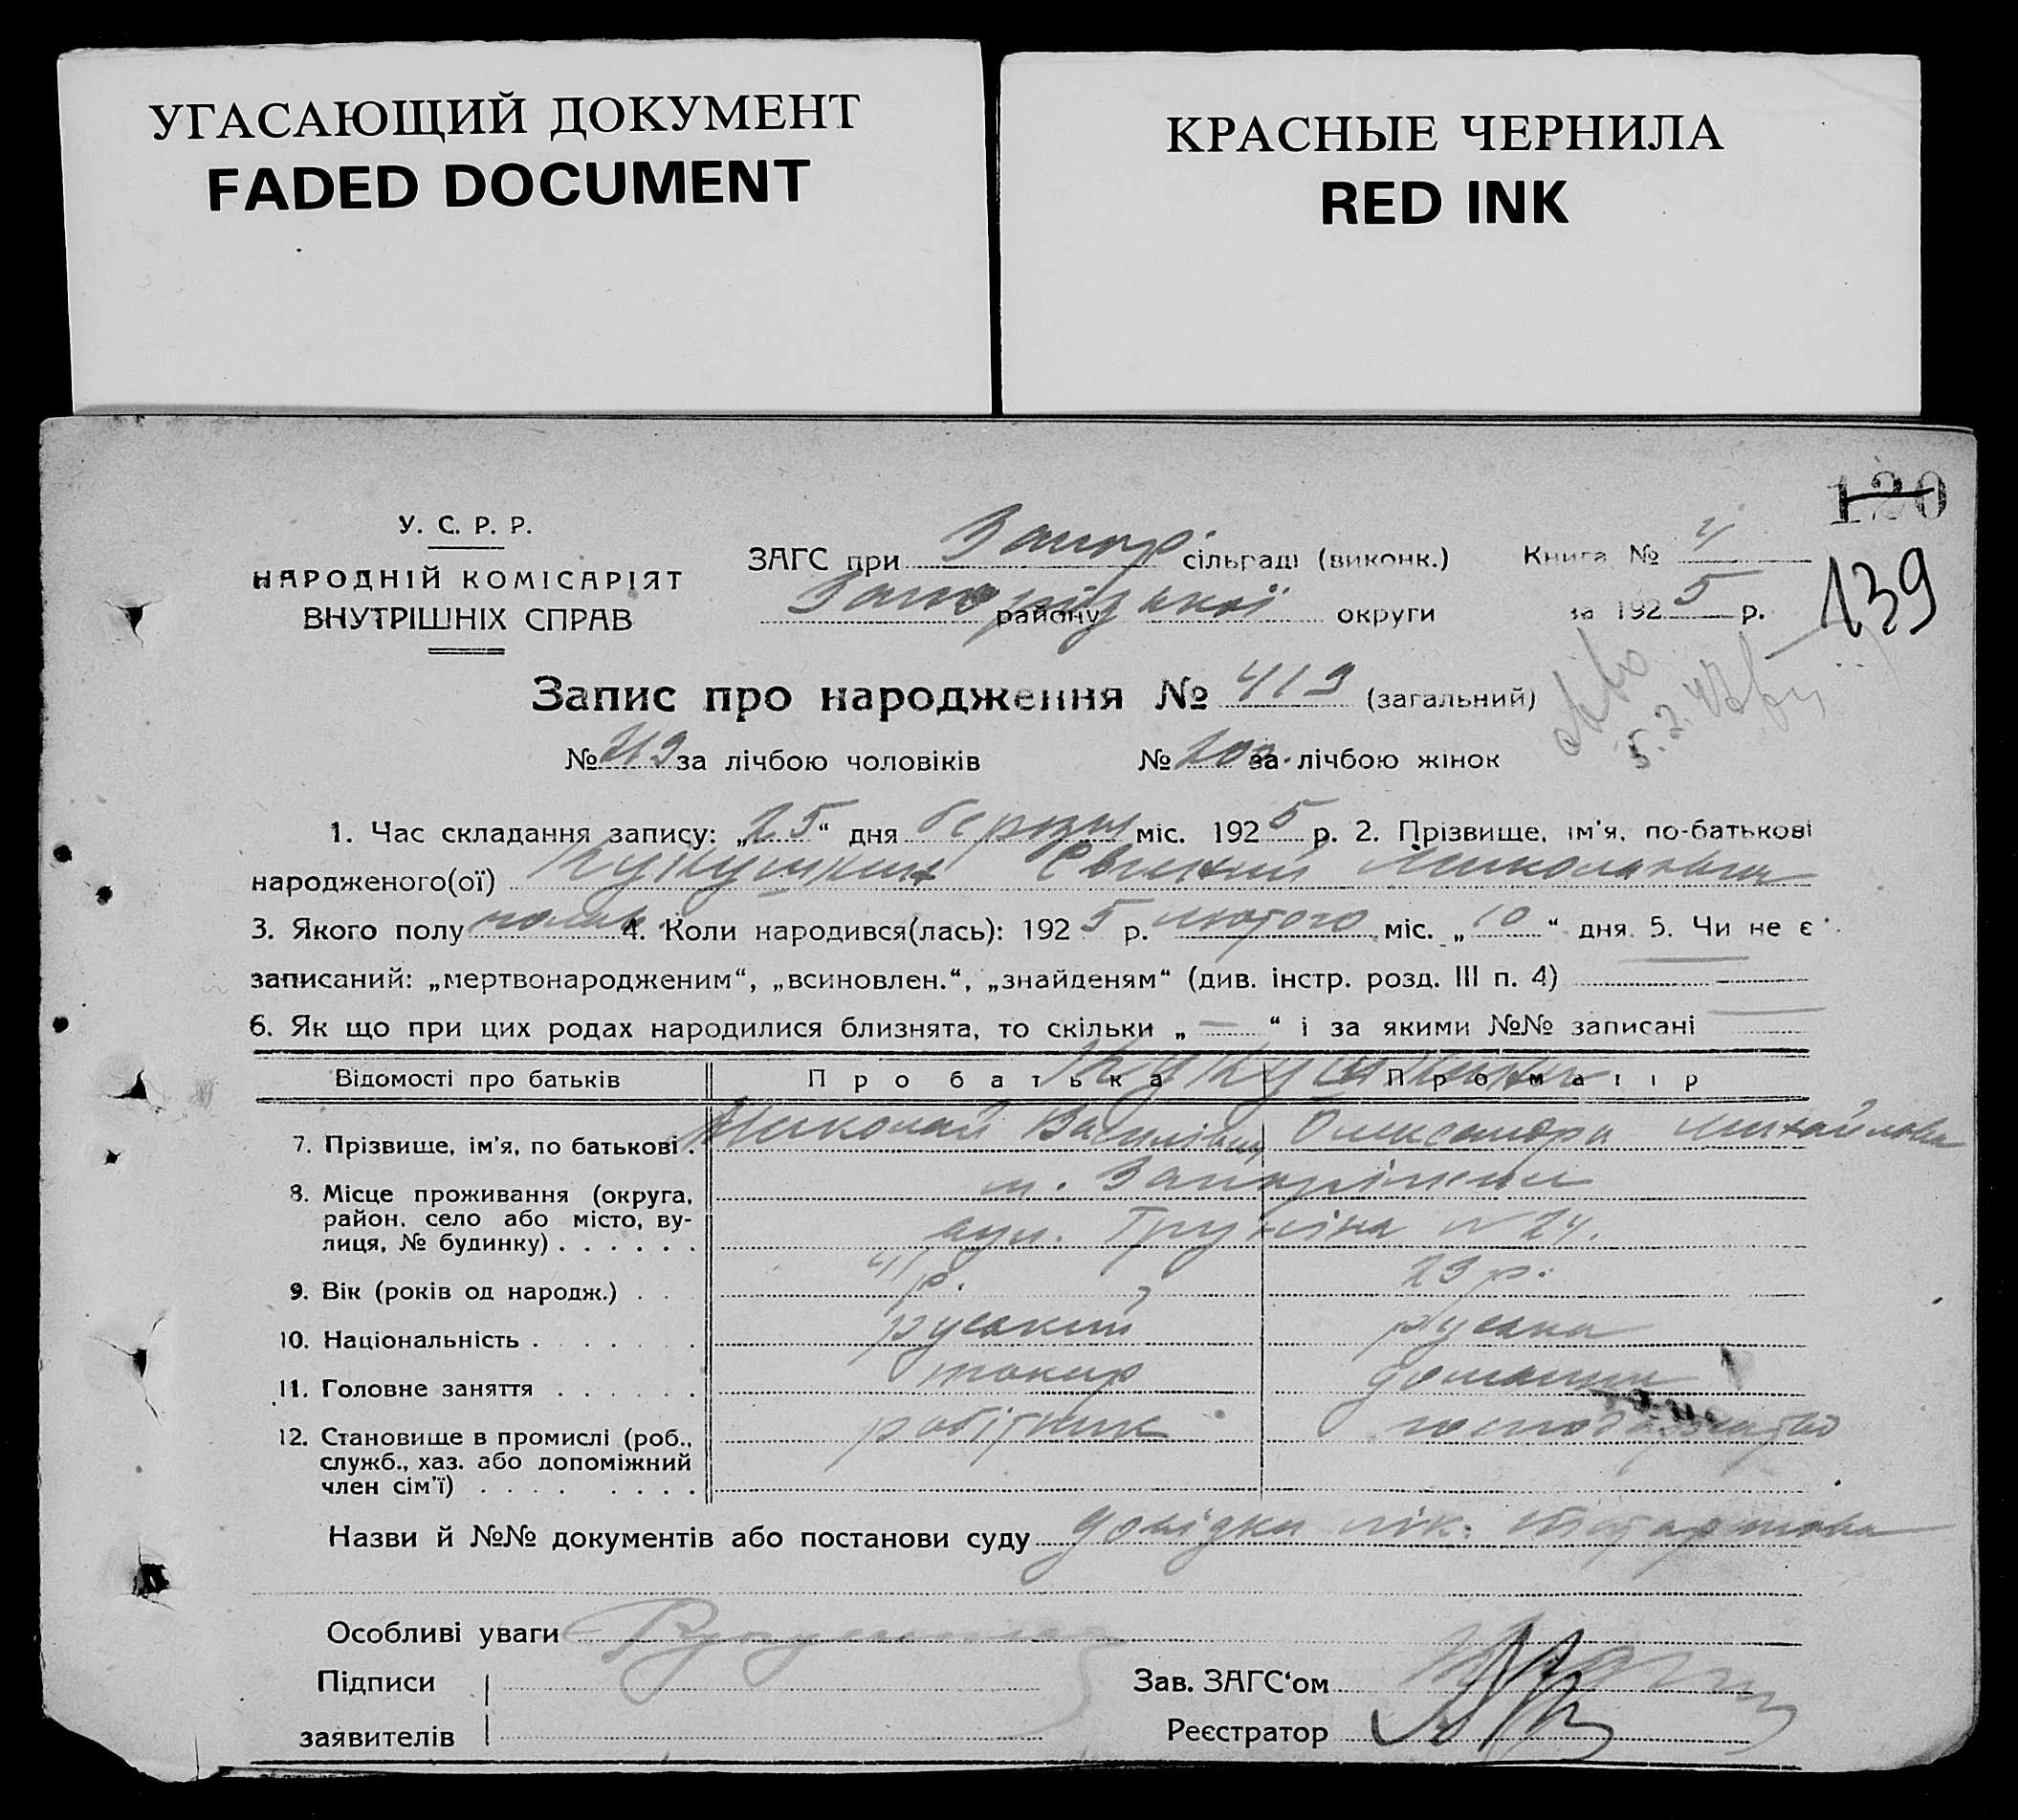 УГАСАЮЩИЙ ДОКУМЕНТ
FADED DOCUMENT
КРАСНЫЕ ЧЕРНИЛА
RED INK
120
139
У. С. Р. Р.
НАРОДНІЙ КОМІСАРІЯТ
ВНУТРІШНІХ СПРАВ
ЗАГС при Запор. сільраді (виконк.) Книга №
Запорізької району округи за 1925 р.
Запис про народження № 419 (загальний)
№ 219 за лічбою чоловіків № 200 за лічбою жінок
1. Час складання запису: „25“ дня березня міс. 1925 р. 2. Прізвище, ім'я, по-батькові
народженого(ої) Кукушкин Євгений Миколаєвич
3. Якого полу 4. Коли народився(лась): 1925 р. лютого міс. „10“ дня 5. Чи не є
записаний: „мертвонародженим“, „всиновлен.“, „знайденям“ (див. інстр. розд. III п. 4)
6. Як що при цих родах народилися близнята, то скільки „—“ і за якими №№ записані —
Відомості про батьків Про батька Про матір
Кукушкини
7. Прізвище, ім'я, по батькові . Миколай Василівич Олександра Михайловна
8. Місце проживання (округа, м. Запоріжжя
район, село або місто, ву-
лиця, № будинку) . . . . . . вул. № 24.
9. Вік (років од народж.) . . . 41 р. 29 р.
10. Національність . . . . . . . руський руська
11. Головне заняття . . . . . . токар домашнє
12. Становище в промислі (роб., робітник господарство
служб., хаз. або допоміжний
член сім'ї) . . . . . . . .
Назви й №№ документів або постанови суду довідка лік.
Особливі уваги
Підписи
заявителів
Зав. ЗАГС'ом
Реєстратор